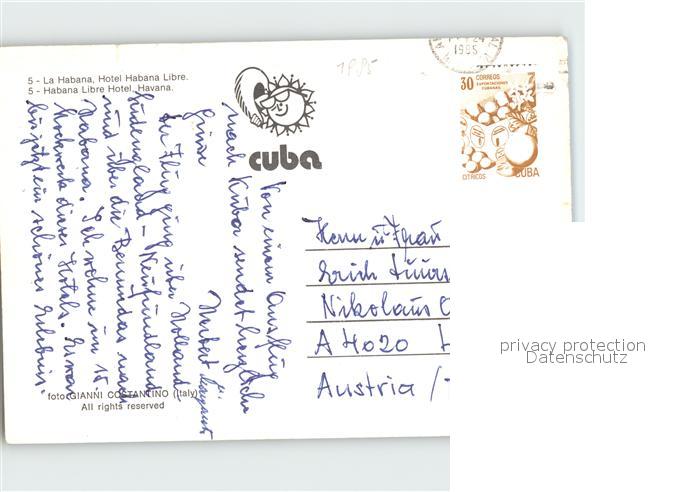 5 - La Habana, Hotel Habana Libre.
5 - Habana Libre Hotel, Havana.
1985
1985
30 CORREOS
EXPORTACIONES
CUBANAS
CITRICOS CUBA
cuba
Von einem Ausflug
nach Kuba sendet herzliche
Grüsse Norbert
Der Flug ging über Holland
Südengland - Neufundland
und über die Bermudas nach
Habana. Ich wohne im 15.
Stockwerk dieses Hotels.
schönes Erlebnis.
Herrn u. Frau
Erich
Nikolaus
A 4020
Austria /
foto: GIANNI COSTANTINO (Italy)
All rights reserved
privacy protection
Datenschutz